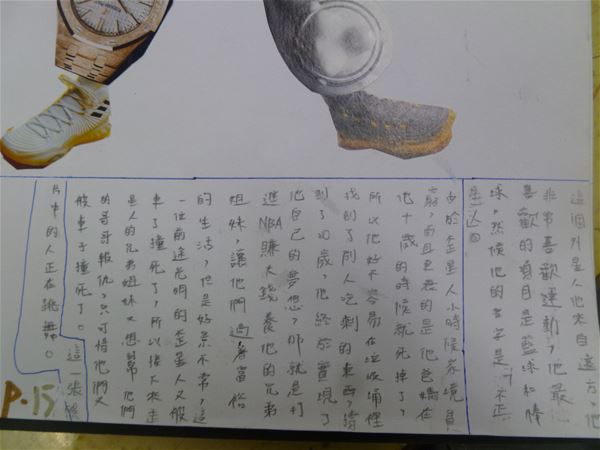 這個外星人他來自遠方，他
非常喜歡運動，他最
喜歡的項目是籃球和棒
球，然候他的名字是「歪
星人」。
由於歪星人小時候家境貧
窮，而且更慘的是他爸媽在
他十歲的時候就死掉了，
所以他好不容易在垃圾桶裡
找到了別人吃剩的東西，
到了20歲，他終於實現了
他自己的夢想，那就是打
進NBA賺大錢養他的兄弟
姐妹，讓他們過著富裕
的生活，但是好景不常，這
一位前途光明的歪星人又被
車子撞死了，所以接下來走
星人的兄弟姐妹又想幫他們
的哥哥報仇，只可惜他們又
被車子撞死了。這一張
片中的人正在跳舞。
P.15